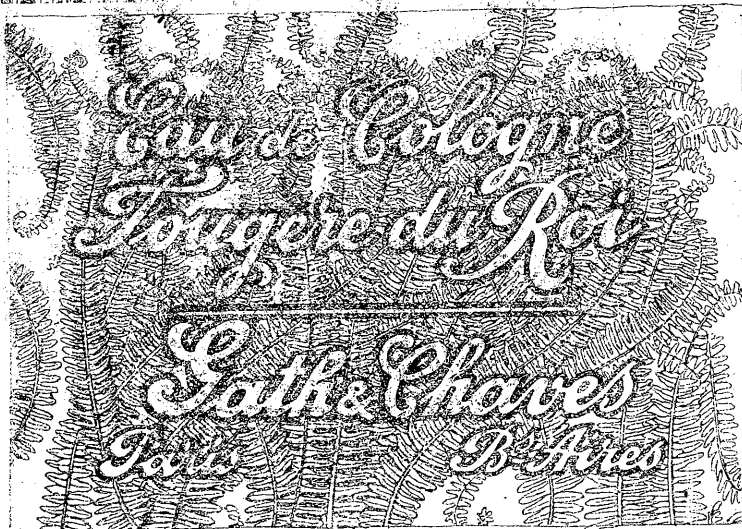 Eau de Cologne
Fougere du Roi
Gath & Chaves
Paris Bs Aires